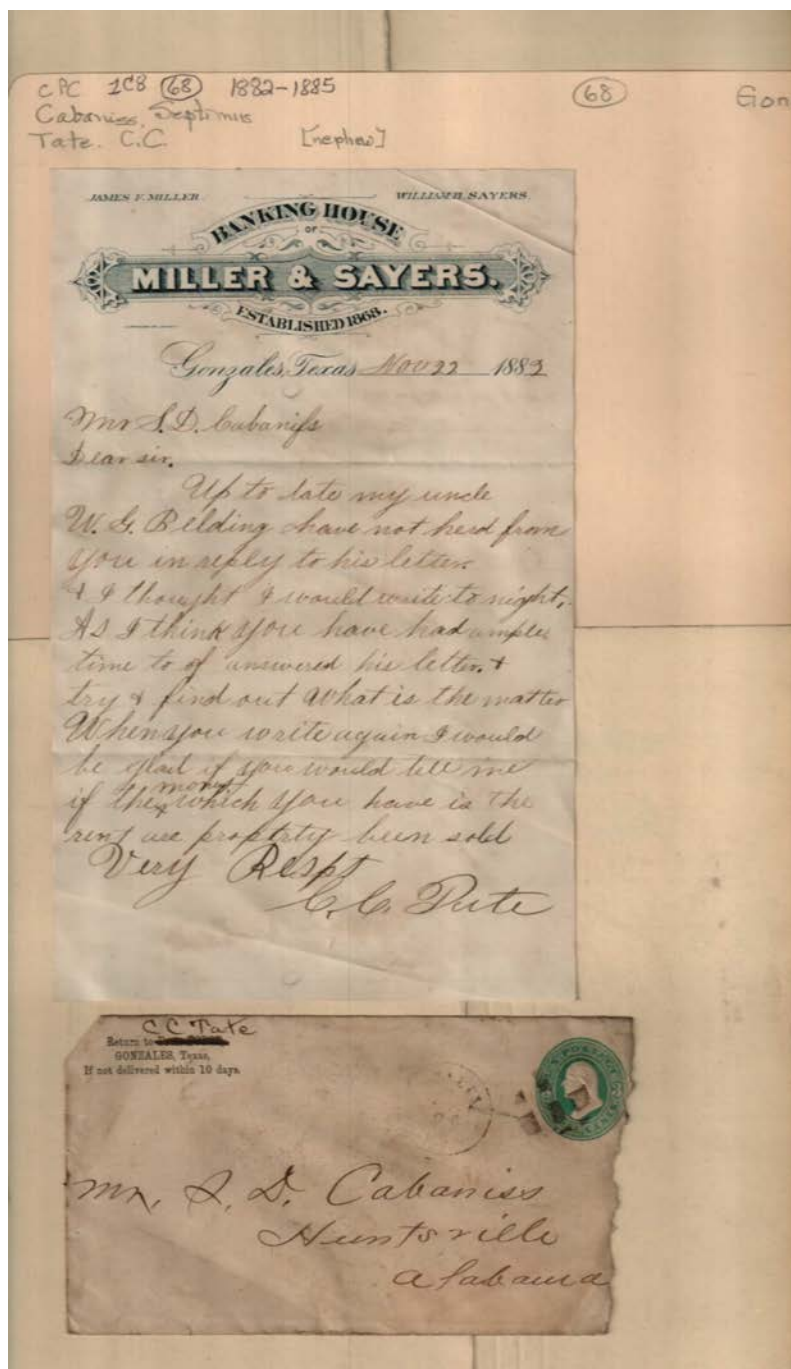 CPC 1C8 (68) 1882-1885
(68)
Gon
Cabaniss, Septimus
Tate. C.C. [nephew]
JAMES F. MILLER. WILLIAM B. SAYERS.
BANKING HOUSE
OF
MILLER & SAYERS.
ESTABLISHED 1868.
Gonzales, Texas Nov 22 1883
Mr S. D. Cabaniss
Dear sir.
Up to late my uncle
W. G. Belding have not herd from
you in reply to his letter.
& I thought I would write to night,
As I think you have had ample
time to of answered his letter. &
try & find out what is the matter
When you write again I would
be glad if you would tell me
money
if the which you have is the
rent are proptrty been sold
Very Respt
C. C. Tate
C C Tate
Return to
GONZALES, Texas,
If not delivered within 10 days.
U.S. POSTAGE
CENTS
Mr. S. D. Cabaniss
Huntsville
Alabama